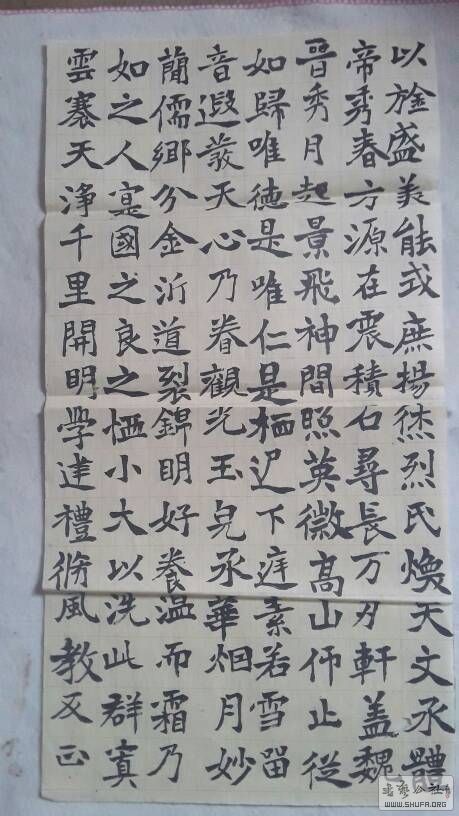 以旌盛美能式庶揚烋烈氏煥天文承體
帝秀春方源在震積石尋長万刃軒蓋魏
晉秀月起景飛神間照英徽高山仰止從
如歸唯德是唯仁是栖迟下庭素若雪留
音遐發天心乃眷觀光玉皃承華烟月妙
簡儒鄉分金沂道裂錦明好養温而霜乃
如之人寔國之良之恓小大以洗此群
雲褰天淨千里開明學建禮脩風教反正
書藝公社
WWW.SHUFA.ORG